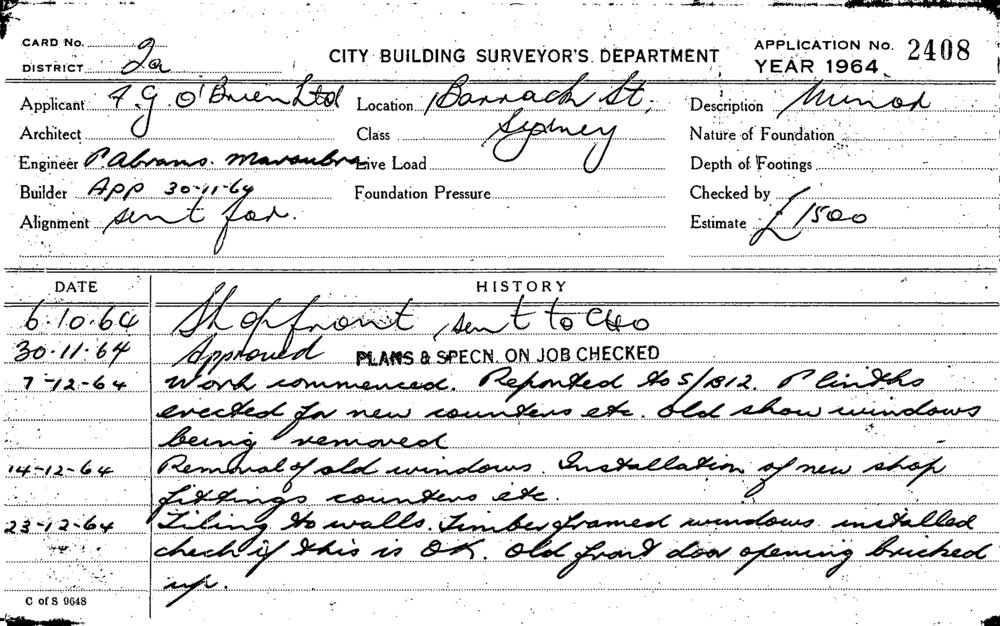 CARD No.
DISTRICT 2a
CITY BUILDING SURVEYOR'S DEPARTMENT
APPLICATION No. 2408
YEAR 1964
Applicant F G O'Brien Ltd Location Barrack St, Description Minor
Architect Class Sydney Nature of Foundation
Engineer P. Abrams. Maroubra Live Load Depth of Footings
Builder App 30-11-64 Foundation Pressure Checked by
Alignment sent for. Estimate £1500
DATE HISTORY
6.10.64 Shopfront, sent to CHO
30.11.64 Approved PLANS & SPECN. ON JOB CHECKED
7-12-64 Work commenced. Reported to S/B12. Plinths
erected for new counters etc. Old show windows
being removed
14-12-64 Removal of old windows. Installation of new shop
fittings counters etc.
23-12-64 Tiling to walls. Timber framed windows installed
check if this is OK. Old front door opening bricked
up.
C of S 9648